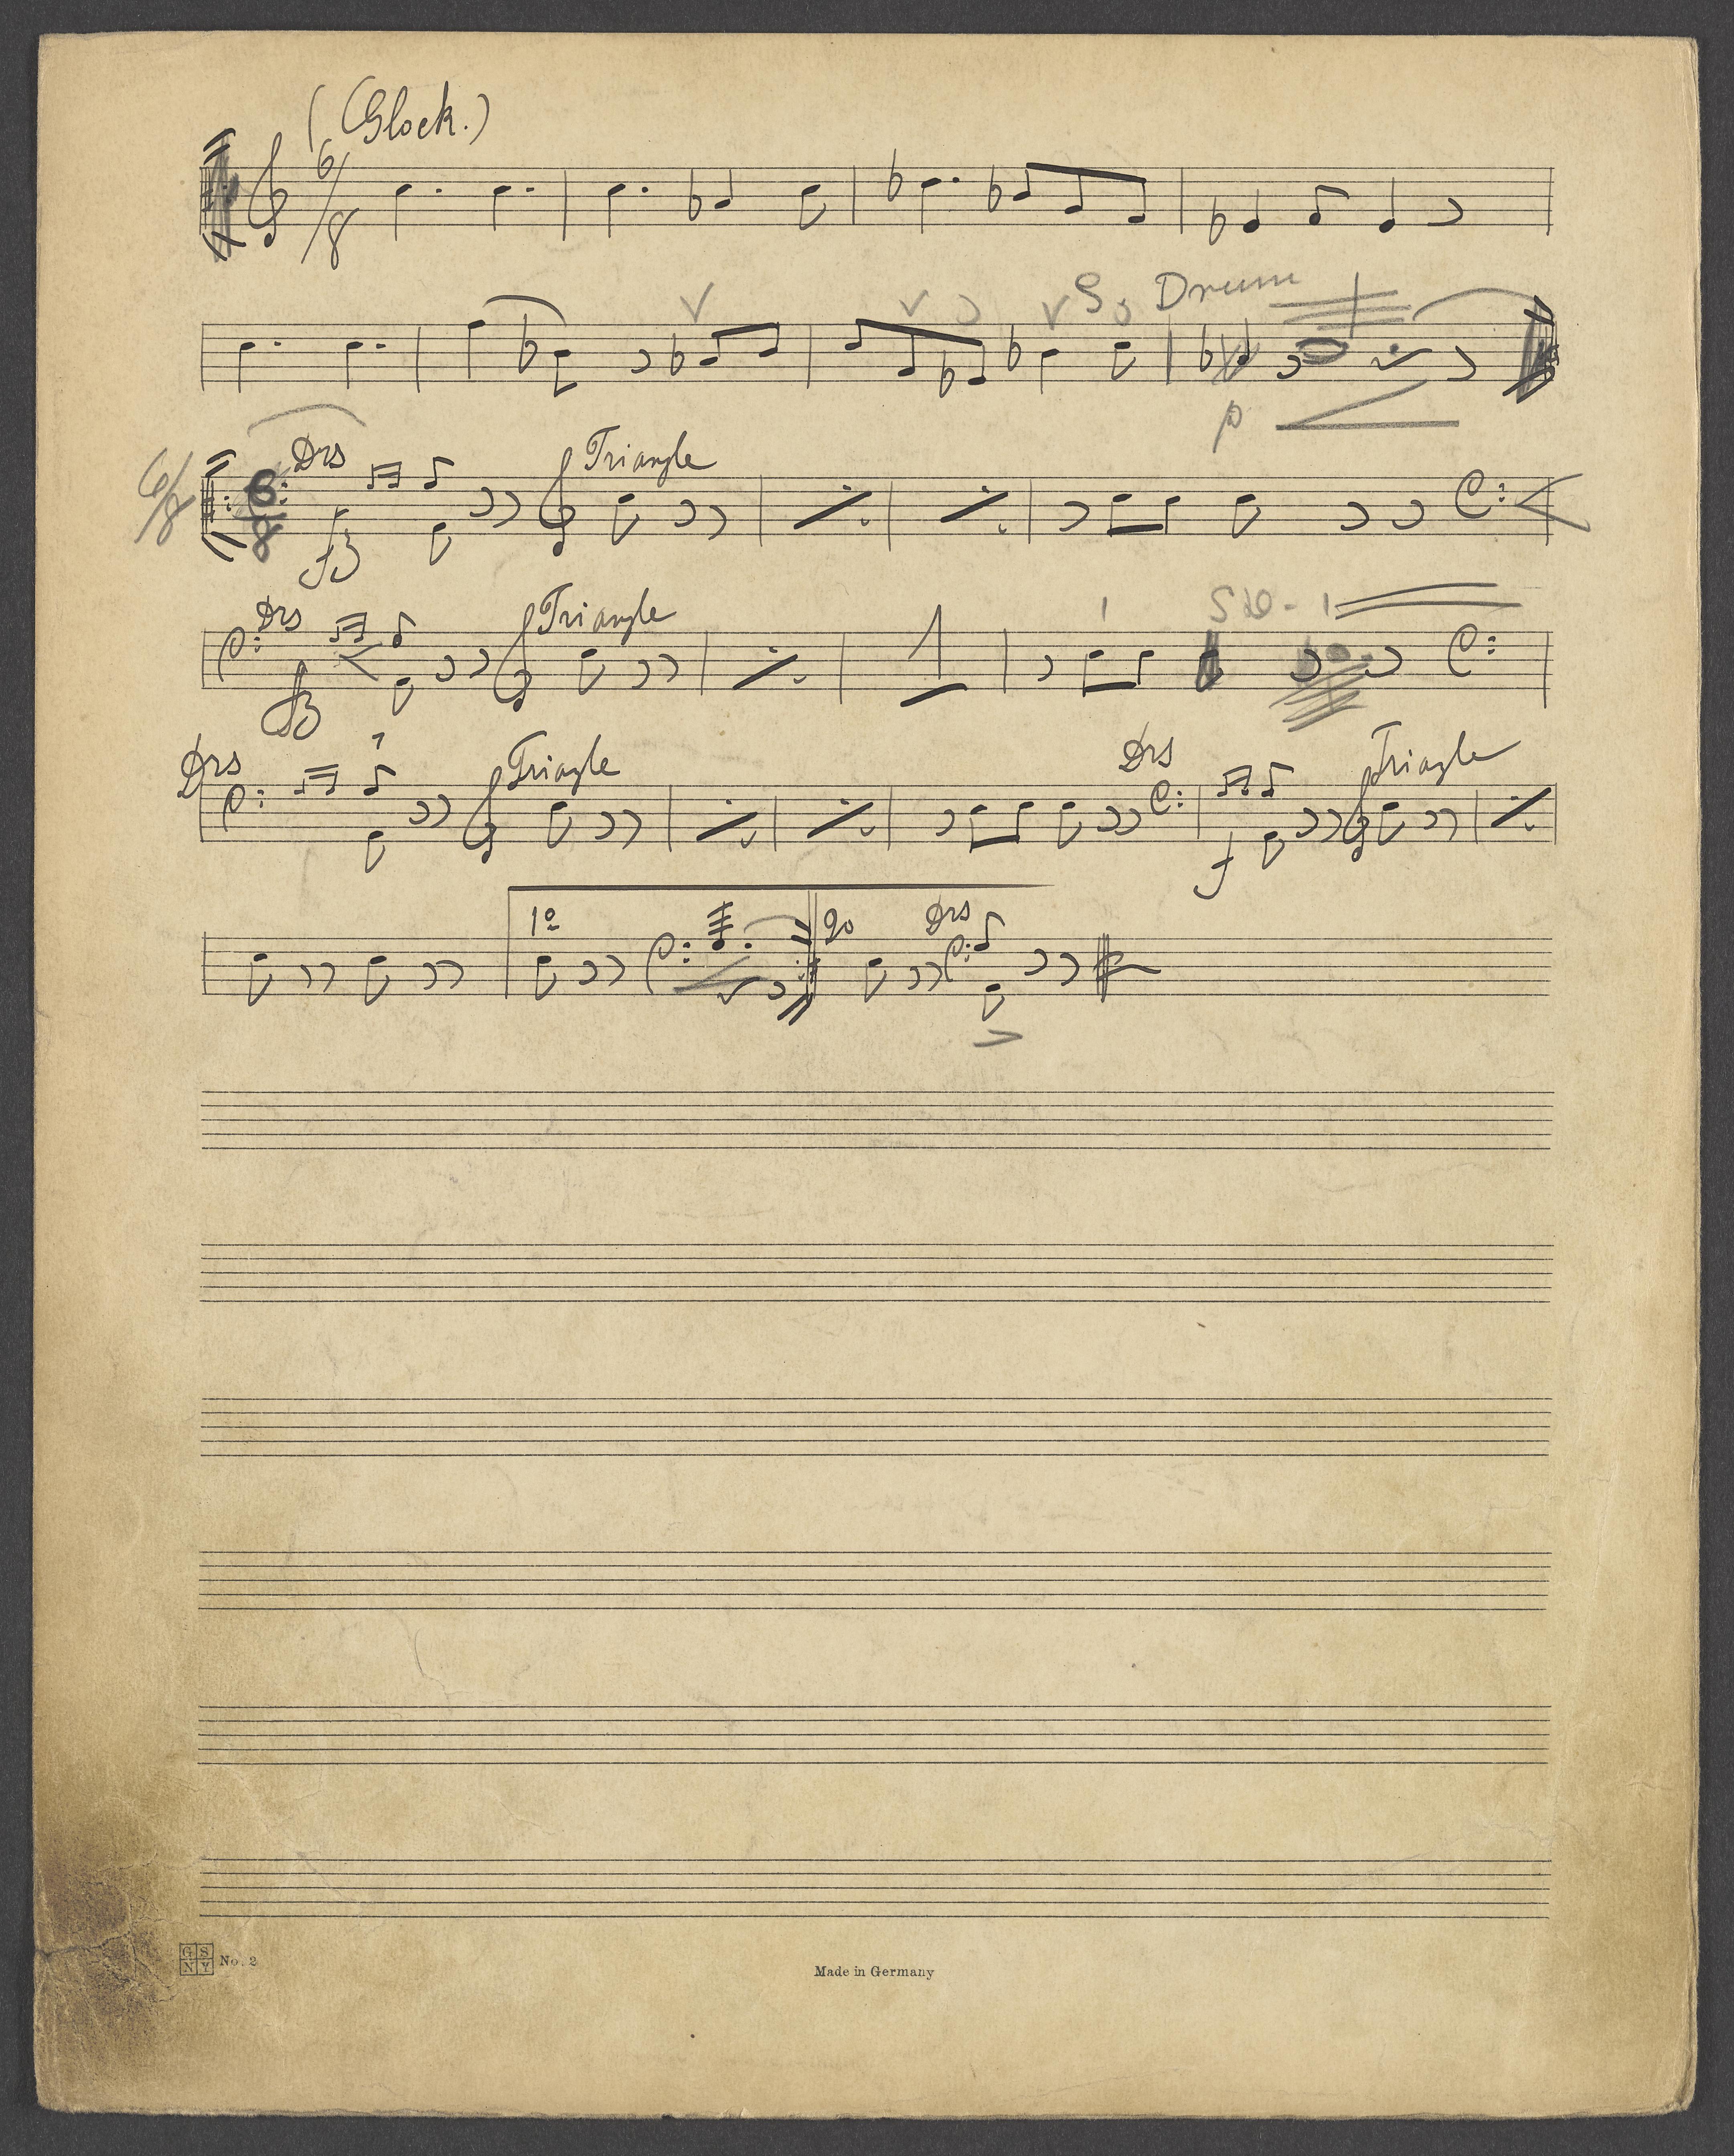 (Glock.)
6/8
S. Drum
p
6/8
Drs
Triangle
6/8
fz
Drs
Triangle
SD - 1
fz
Drs
Triagle
Drs
Triagle
f
1o
2o
Drs
GS
NY
No. 2
Made in Germany